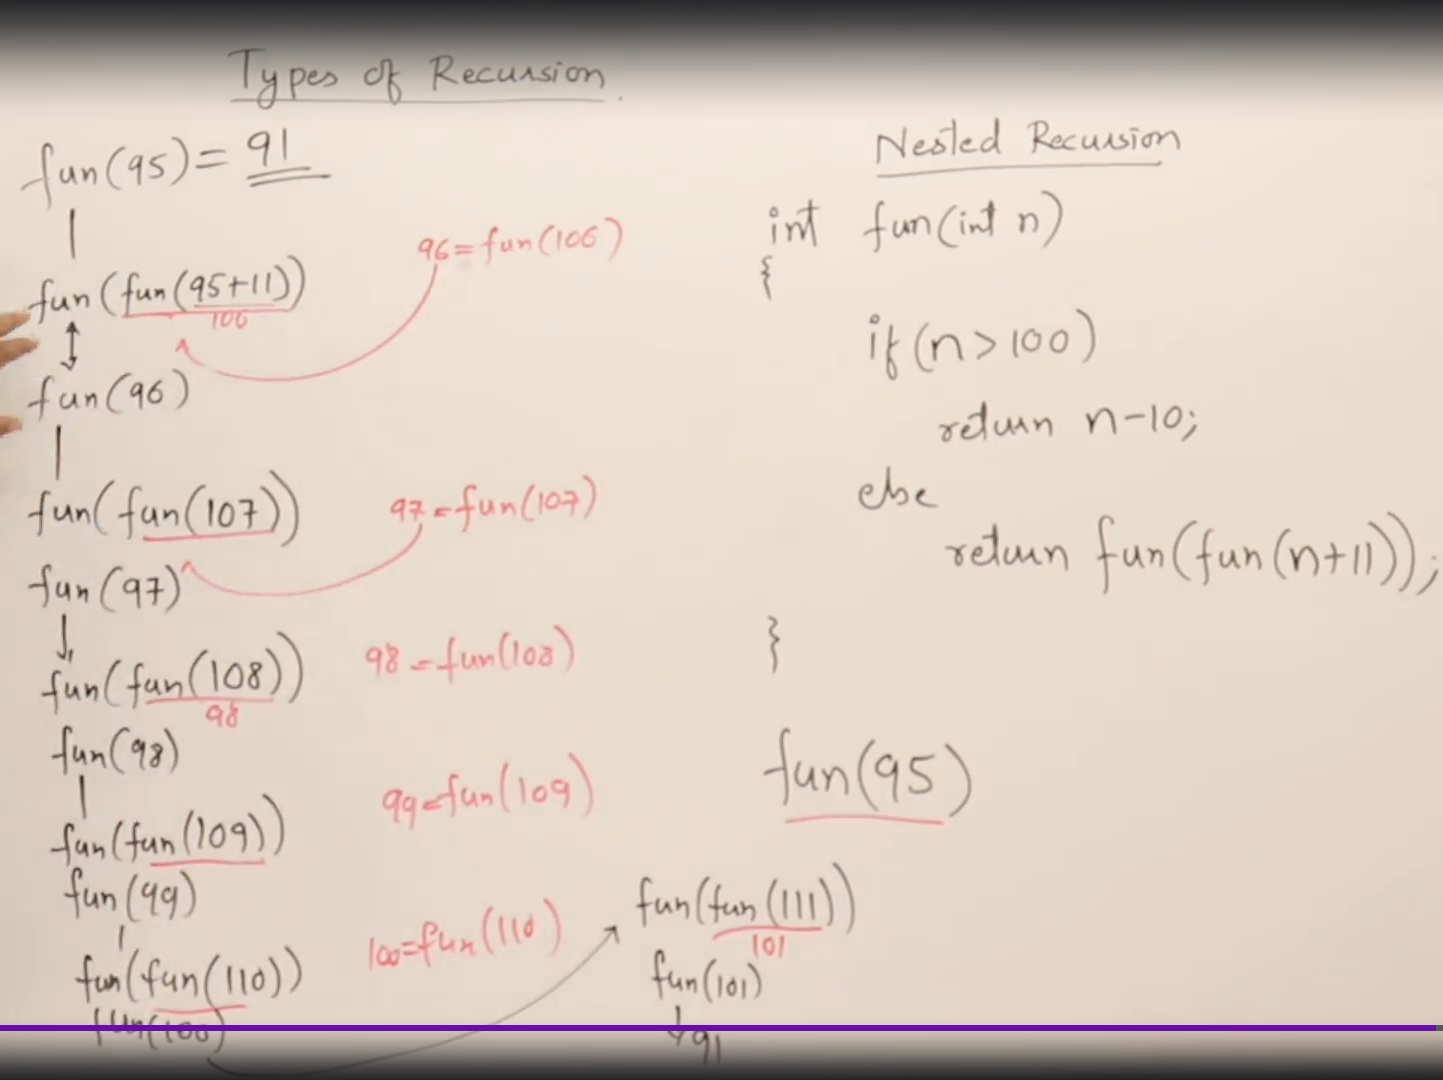 Types of Recursion.
fun(95) = 91
fun(fun(95+11))
106
96 = fun(106)
fun(96)
fun(fun(107))
97 = fun(107)
fun(97)
fun(fun(108))
98
98 = fun(108)
fun(98)
fun(fun(109))
99 = fun(109)
fun(99)
fun(fun(110))
100 = fun(110)
fun(100)
fun(fun(111))
101
fun(101)
91
Nested Recursion
int fun(int n)
{
if(n>100)
return n-10;
else
return fun(fun(n+11));
}
fun(95)